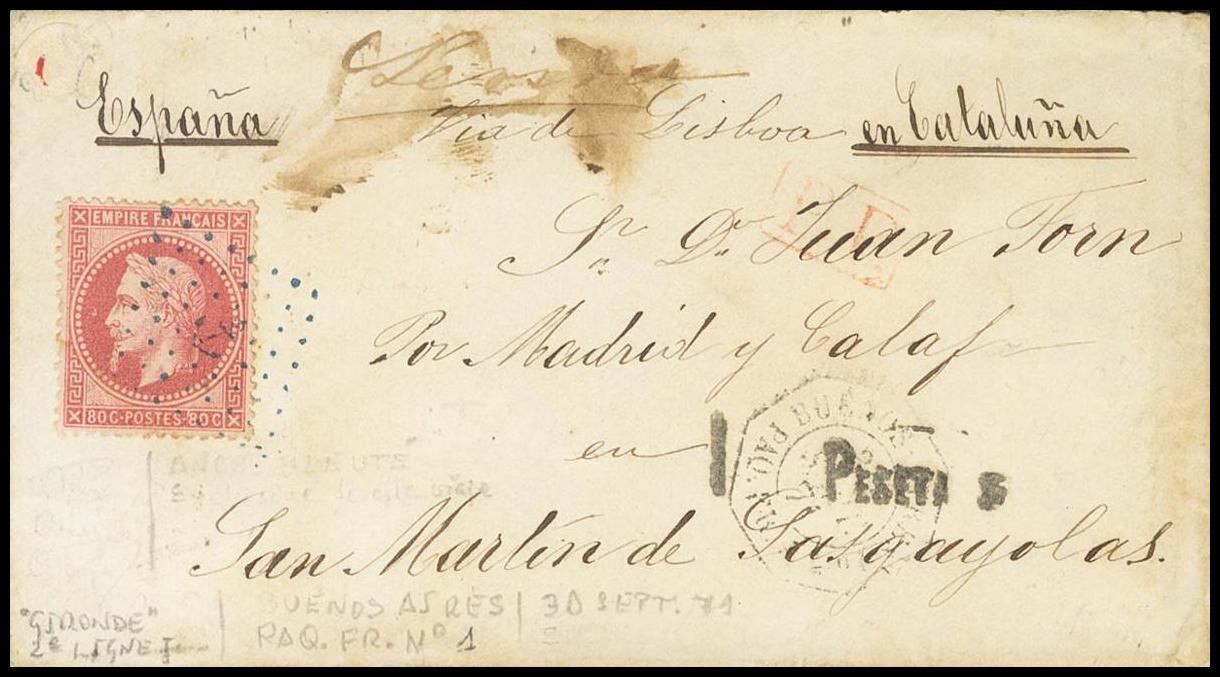 España
Via de Lisboa
en Cataluña
EMPIRE FRANÇAIS
80 C·POSTES·80 C
Sr. Dr. Juan Forn
Por Madrid y Calaf
en
1 PESETA S
BUENOS
San Martin de Sasgayolas.
"GIRONDE"
2e LIGNE
BUENOS AIRES
PAQ. FR. Nº 1
30 SEPT. 71